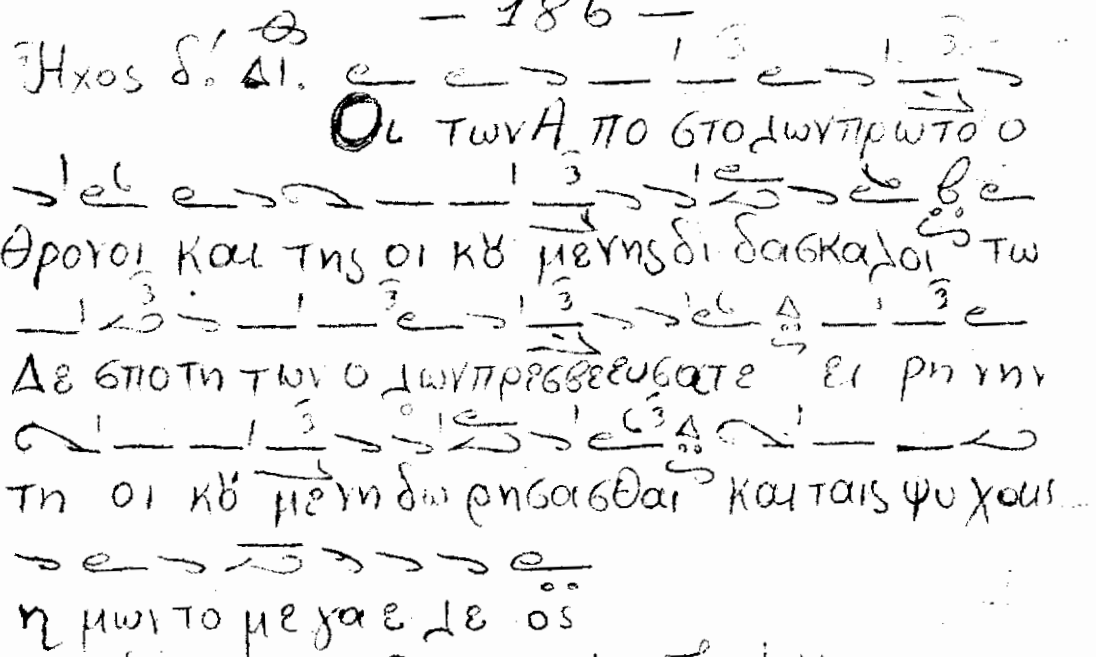 — 186 —
Ἦχος δ΄. Δι.
Οι των Α πο στολων πρωτο ο
θρονοι και της οι κȣ μενης δι δασκαλοι τω
Δε σποτη των ο λων πρεσβεευσατε ει ρη νην
τη οι κȣ μενη δω ρησασθαι και ταις ψυ χαις
η μων το μεγα ε λε ος